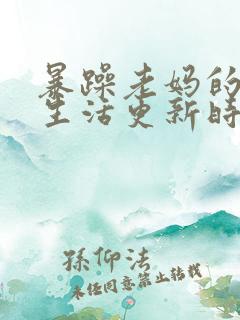 暴躁老妈的
生活更新时
孫仰法
未经同意禁止转载